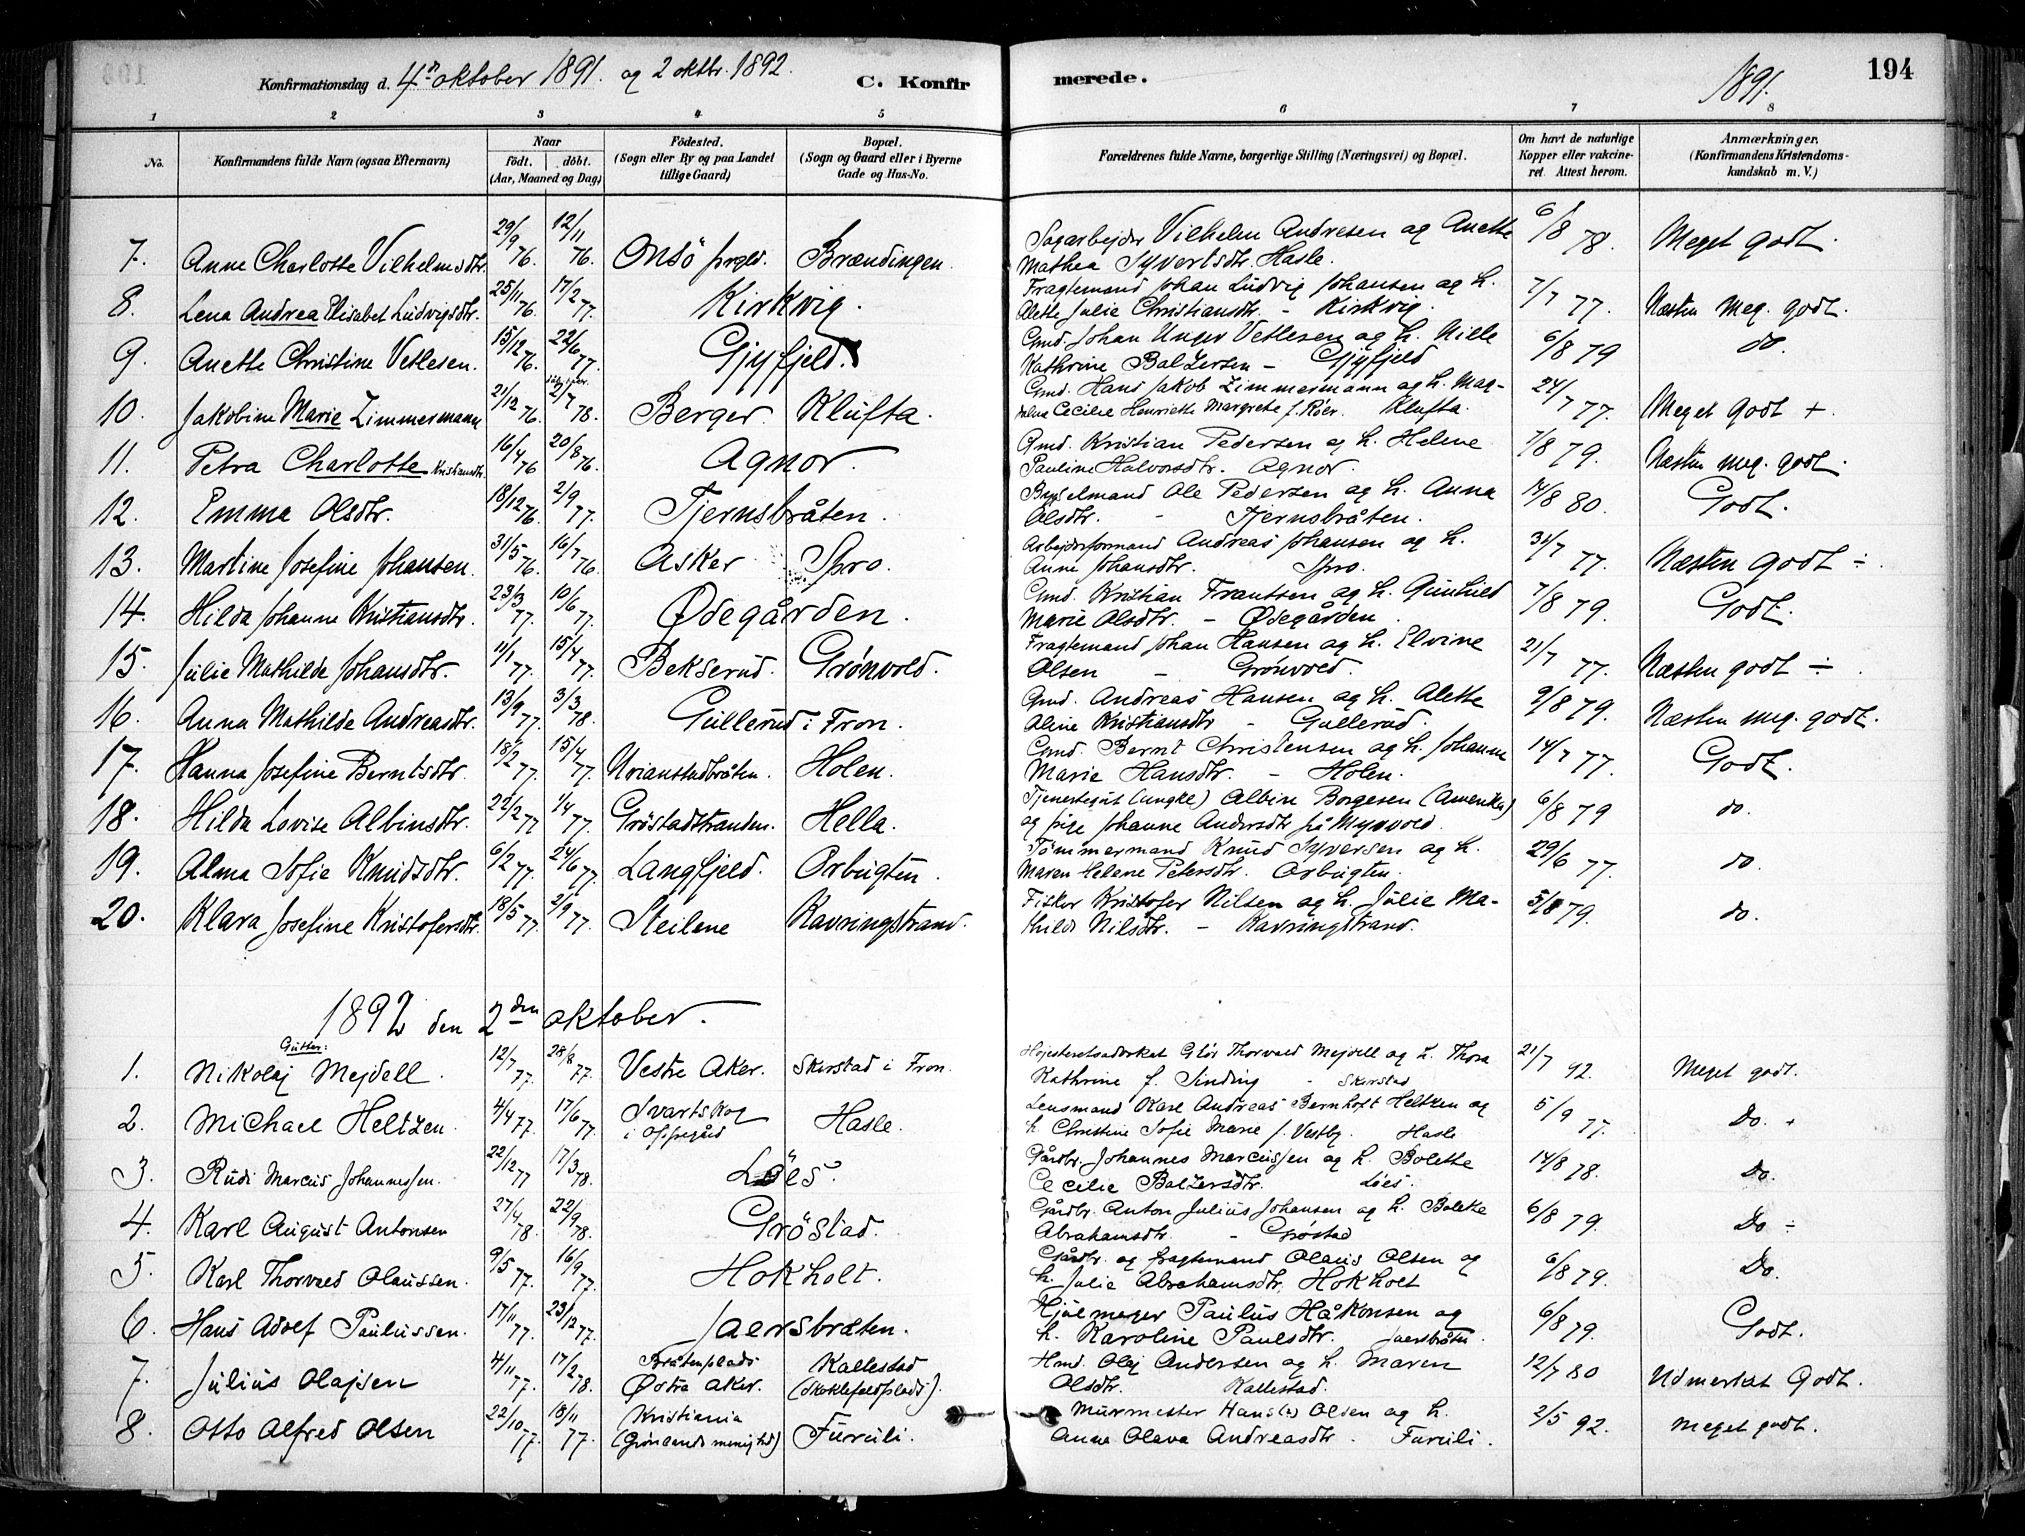 Konfirmationsdag d. 4de oktober 1891. og 2 oktbr. 1892. C. Konfirmerede. 1891. 194
1 2 3 4 5 6 7 8
No. Konfirmandens fulde Navn (ogsaa Efternavn) Naar født. døbt. (Aar, Maaned og Dag) Fødested. (Sogn eller By og paa Landet tillige Gaard) Bopæl. (Sogn og Gaard eller i Byerne Gade og Hus-No. Forældrenes fulde Navne, borgerlige Stilling (Næringsvei) og Bopæl. Om havt de naturlige Kopper eller vakcineret. Attest herom. Anmærkninger. (Konfirmandens Kristendomskundskab m. V.)
7. Anne Charlotte Vilhelmsdtr. 29/9 76. 12/11 76. Onsö prgld. Brændingen. Sagarbejder Vilhelm Andresen og Anette 6/8 78. Meget godt.
Mathea Syvertsdtr. Hasle.
8. Lena Andrea Elisabet Ludvigsdtr. 25/11 76. 17/2 77. Kirkvig. Fragtemand Johan Ludvig Johansen og h. 7/7 77. Næsten meg. godt.
Alette Julie Christiansdtr. - Kirkvig.
9. Anette Christine Vetlesen. 15/12 76. 22/6 77. Gjyfjeld. Gmd. Johan Unger Vetlesen og h. Nille 6/8 79 do.
Kathrine Baltzersen - Gjyfjeld
10. Jakobine Marie Zimmermann 21/12 76. 2/7 78. Berger Klufta. Gmd. Hans Jakob Zimmermann og h. Mag- 24/7 77. Meget Godt +
dalena Cecilie Henriette Margrete f. Röer. Klufta.
11. Petra Charlotte Kristiansdtr. 16/4 76 20/8 76. Agnor. Gmd. Kristian Pedersen og h. Helene 7/8 79. Næsten meg. godt.
Pauline Halvorsdtr. Agnor.
12. Emma Olsdtr. 18/12 76. 2/9 77. Tjernsbråten. Ole Pedersen og h. Anna 14/8 80. Godt.
Olsdtr. - Tjernsbråten.
13. Martine Josefine Johansen. 31/5 76. 16/7 76. Asker Spro. Arbejdsformand Andreas Johansen og h. 31/7 77. Næsten godt ÷.
Anne Johansdtr. Spro.
14. Hilda Johanne Kristiansdtr. 23/3 77. 10/6 77. Ødegården. Gmd. Kristian Frantsen og h. Gunhild 7/8 79. Godt.
Marie Olsdtr. - Ødegården.
15. Julie Mathilde Johansdtr. 11/1 77. 15/4 77. Bekserud. Grønvold. Fragtemand Johan Hansen og h. Elvine 21/7 77. Næsten godt ÷.
Olsen - Grønvold.
16. Anna Mathilde Andreasdtr. 13/9 77. 3/3 78. Gullerud i Fron. Gmd. Andreas Hansen og h. Alette 9/8 79. Næsten meg. godt.
Aline Kristiansdtr - Gullerud.
17. Hanna Josefine Berntsdtr. 18/2 77. 15/4 77. Urianstadbråten. Holen. Gmd. Bernt Christensen og h. Johanne 14/7 77. Godt.
Marie Hansdtr. - Holen.
18. Hilda Lovise Albinsdtr. 22/2 77 1/4 77. Gröstadstranden. Hella. Tjenestegut (ungke) Albin Borgesen (Amerika) 6/8 79 do.
og pige Johanne Andersdtr på Myrvold.
19. Alma Sofie Knudsdtr. 6/2 77. 24/6 77. Langfjeld. Orbugten. Tömmermand Knud Syversen og h. 29/6 77. do.
Maren Helene Petersdtr. Orbugten.
20. Klara Josefine Kristofersdtr. 18/5 77. 2/9 77. Steilene Kavringstrand. Fisker Kristofer Nilsen og h. Julie Ma- 5/8 79. do.
thilde Nilsdtr. - Kavringstrand.
1892 den 2den oktober.
Gutter:
1. Nikolaj Mejdell. 12/7 77. 28/8 77. Vestre Aker. Skerstad i Fron. Højesteretsadvokat Glör Thorvald Mejdell og h. Thora 21/7 92. Meget godt.
Kathrine f. Sinding - Skerstad
2. Michael Heltzen. 4/4 77. 17/6 77. Svartskog i Oppegård Hasle. Lensmand Karl Andreas Bernhoft Heltzen og 5/9 77. Do. +
h. Christine Sofie Marie f. Vestby. Hasle
3. Rudi Marcus Johannessen. 22/12 77 17/3 78. Löes. Gårdbr. Johannes Marcussen og h. Bolette 14/8 78. Do.
Cecilie Baltzersdtr. Löes.
4. Karl August Antonsen 27/4 78. 22/9 78. Gröstad. Gårdbr. Anton Julius Johansen og h. Bolette 6/8 79. Do ÷
Abrahamsdtr. - Grøstad
5. Karl Thorvald Olaussen. 9/5 77. 16/9 77. Hokholt. Gårdbr. og fragtemand Olaus Olsen og 6/8 79. Do.
h. Julie Abrahamsdtr, Hokholt
6. Hans Adolf Paulussen. 17/11 77. 23/12 77. Jaersbråten. Hjulmager Paulus Håkonsen og 6/8 79. Godt.
h. Karoline Paulsdtr. Jaersbråten.
7. Julius Olajsen 4/11 77. 17/2 78. Bråtenplads Østre Aker. Kallestad (Skoklefaldplads). Hmd. Olaj Andersen og h. Maren 12/7 80 Udmerket Godt.
Olsdtr. Kallestad.
8. Otto Alfred Olsen 22/10 77. 18/11 77. Kristiania (Grønlands menighed) Furuli. Murmester Hans Olsen og h. 2/5 92. Meget godt.
Anne Olava Andreasdtr. Furuli.